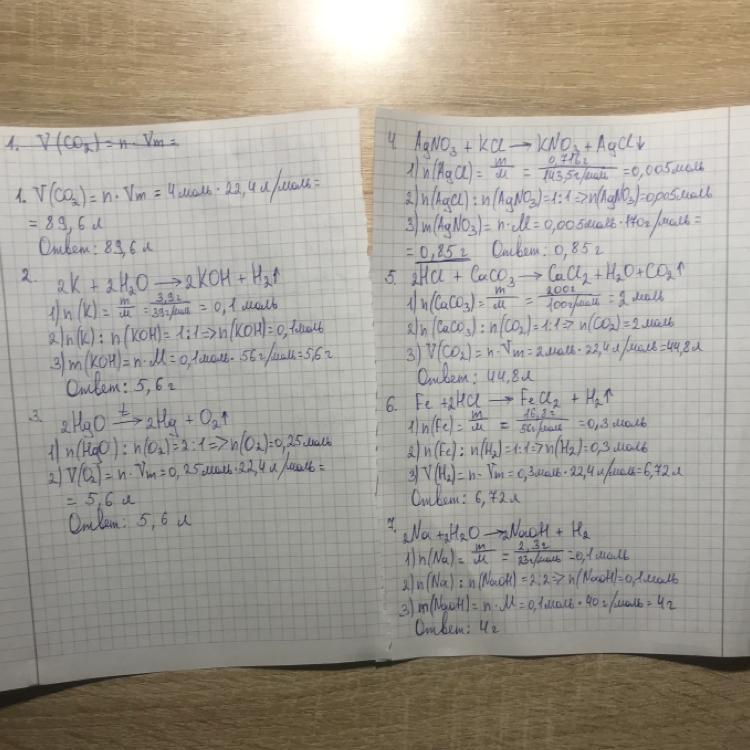 1. V(CO₂) = n · Vm =
1. V(CO₂) = n · Vm = 4 моль · 22,4 л/моль =
= 89,6 л
Ответ: 89,6 л
2. 2K + 2H₂O → 2KOH + H₂↑
1) n(K) = m/M = 3,9г/39г/моль = 0,1 моль
2) n(K) : n(KOH) = 1:1 => n(KOH) = 0,1моль
3) m(KOH) = n · M = 0,1моль · 56г/моль = 5,6г
Ответ: 5,6 г
3. 2HgO t→ 2Hg + O₂↑
1) n(HgO) : n(O₂) = 2:1 => n(O₂) = 0,25моль
2) V(O₂) = n · Vm = 0,25моль · 22,4 л/моль =
= 5,6 л
Ответ: 5,6 л
4. AgNO₃ + KCl → KNO₃ + AgCl↓
1) n(AgCl) = m/M = 0,716г/143,5г/моль = 0,005моль
2) n(AgCl) : n(AgNO₃) = 1:1 => n(AgNO₃) = 0,005моль
3) m(AgNO₃) = n · M = 0,005моль · 170г/моль =
= 0,85г Ответ: 0,85г
5. 2HCl + CaCO₃ → CaCl₂ + H₂O + CO₂↑
1) n(CaCO₃) = m/M = 200г/100г/моль = 2 моль
2) n(CaCO₃) : n(CO₂) = 1:1 => n(CO₂) = 2моль
3) V(CO₂) = n · Vm = 2моль · 22,4 л/моль = 44,8л
Ответ: 44,8л
6. Fe + 2HCl → FeCl₂ + H₂↑
1) n(Fe) = m/M = 16,8г/56г/моль = 0,3 моль
2) n(Fe) : n(H₂) = 1:1 => n(H₂) = 0,3моль
3) V(H₂) = n · Vm = 0,3моль · 22,4 л/моль = 6,72л
Ответ: 6,72л
7. 2Na + 2H₂O → 2NaOH + H₂
1) n(Na) = m/M = 2,3г/23г/моль = 0,1 моль
2) n(Na) : n(NaOH) = 2:2 => n(NaOH) = 0,1моль
3) m(NaOH) = n · M = 0,1моль · 40 г/моль = 4г
Ответ: 4г